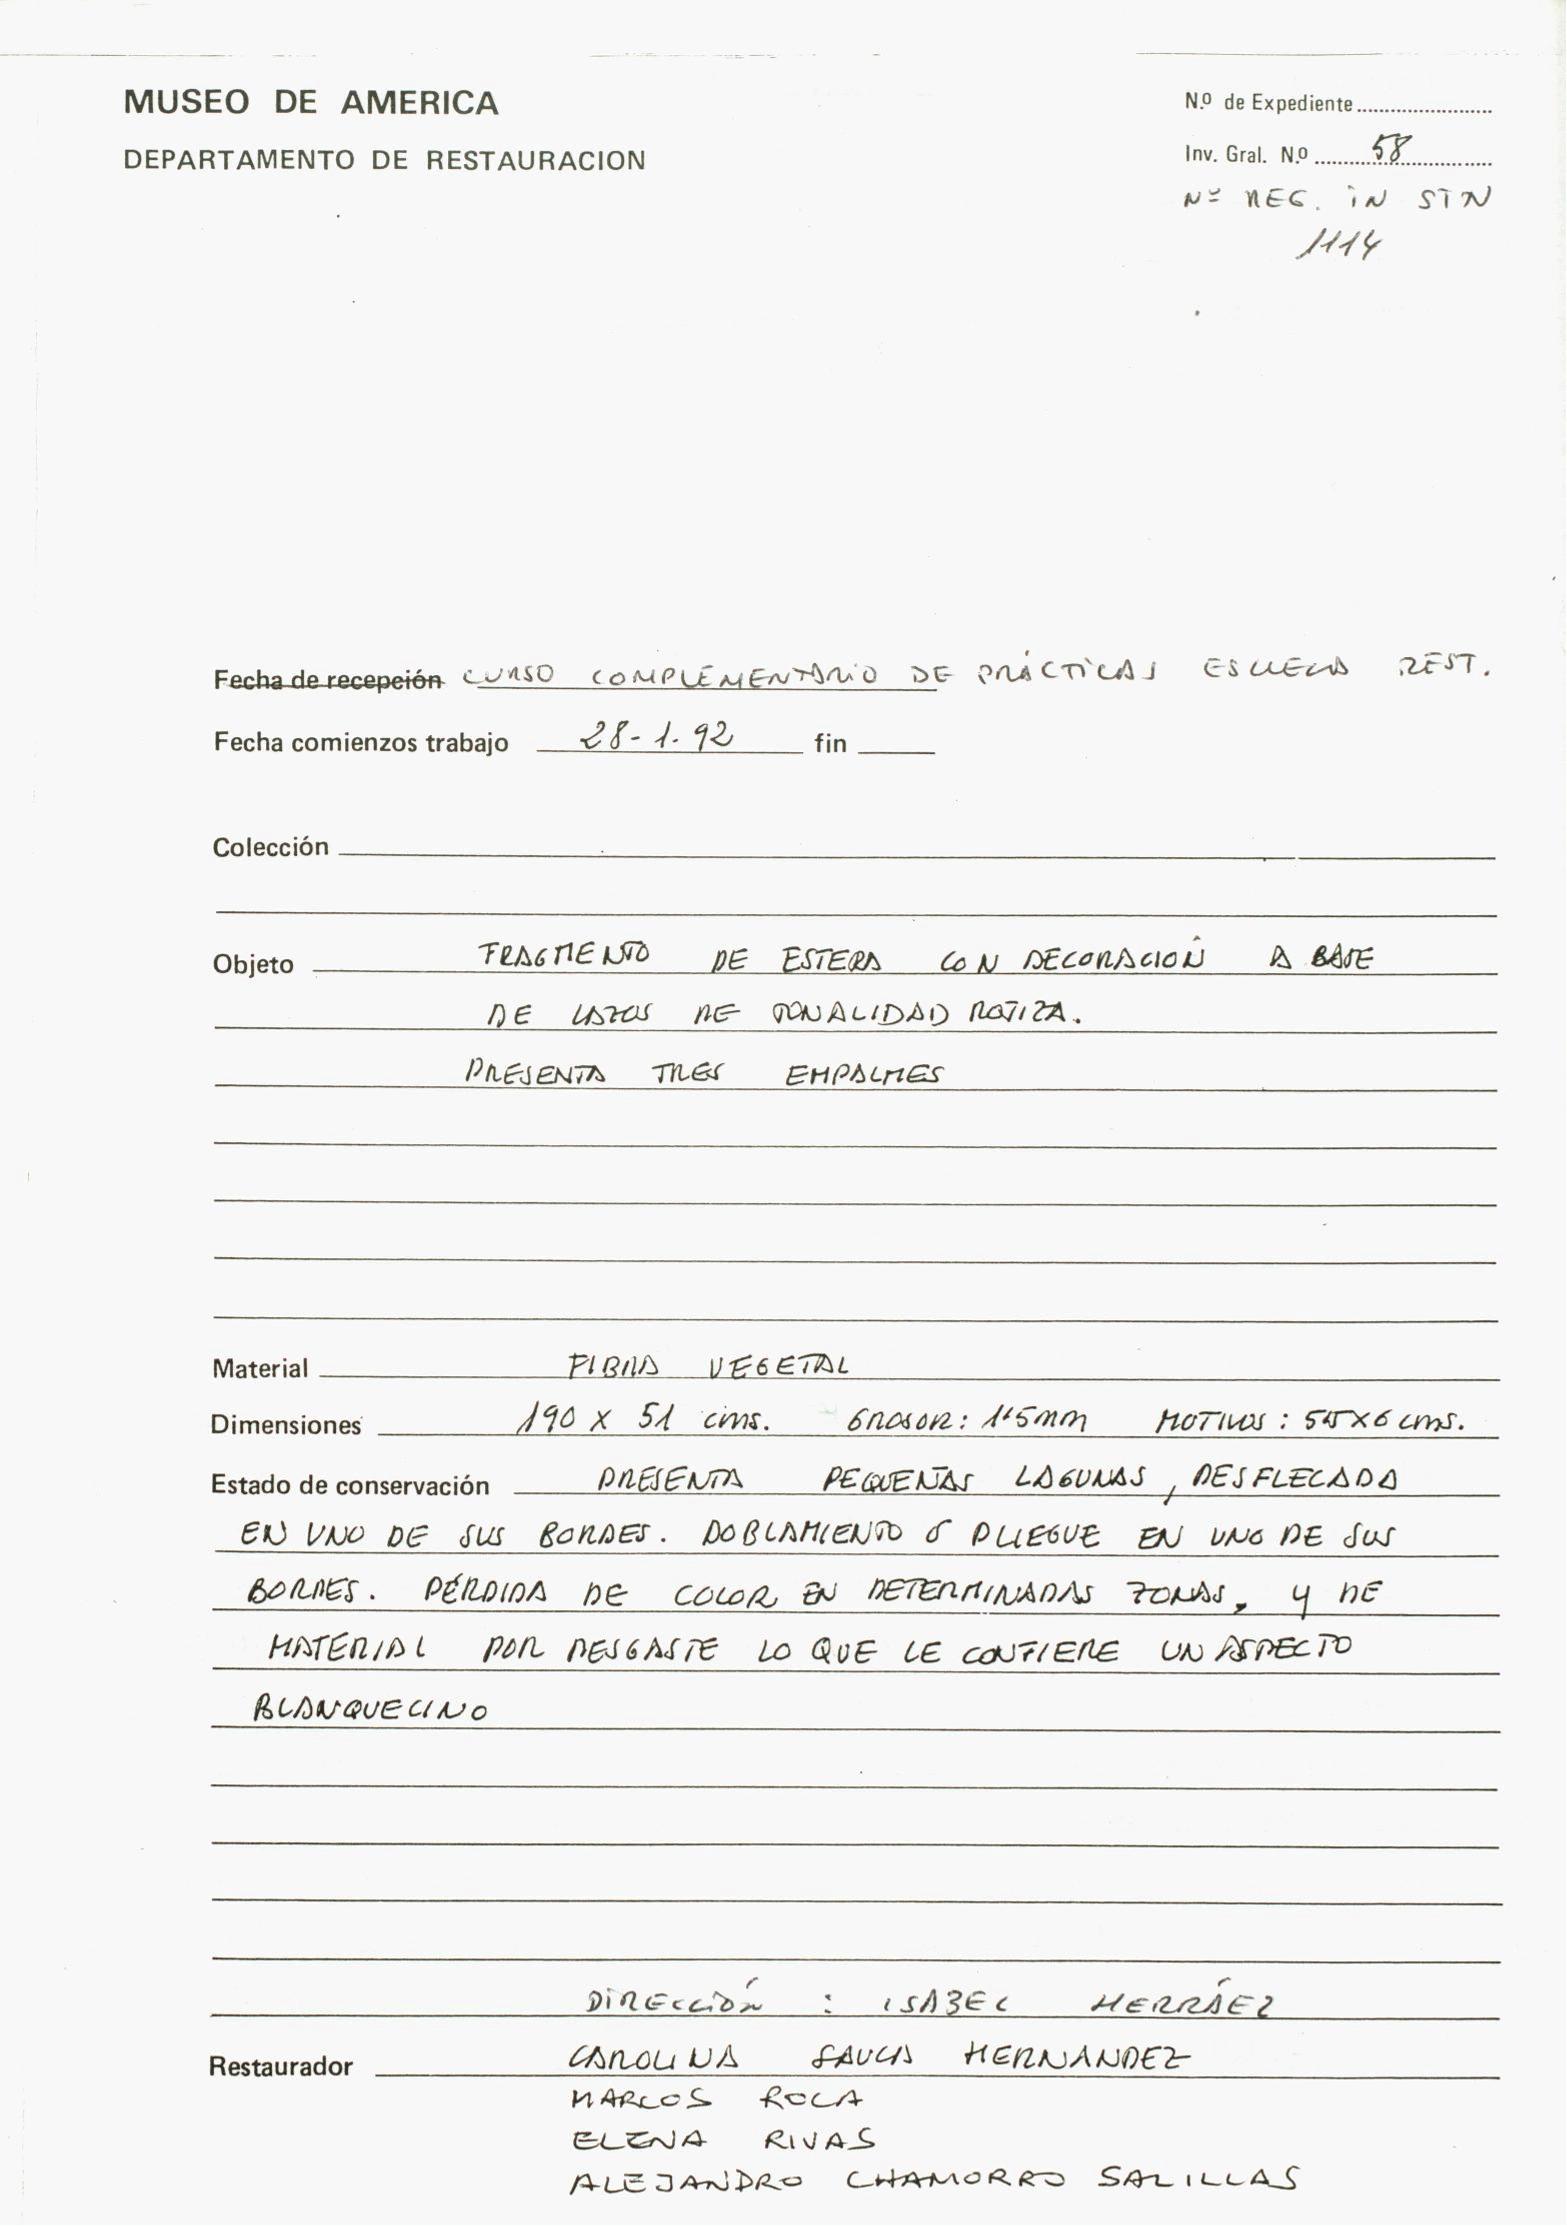 MUSEO DE AMERICA
DEPARTAMENTO DE RESTAURACION
N.º de Expediente
Inv. Gral. N.º 58
Nº REG. IN SIN
1114
Fecha de recepción CURSO COMPLEMENTARIO DE PRÁCTICAS ESCUELA REST.
Fecha comienzos trabajo 28-1-92 fin
Colección
Objeto FRAGMENTO DE ESTERA CON DECORACIÓN A BASE
DE LAZOS DE TONALIDAD ROJIZA.
PRESENTA TRES EMPALMES
Material FIBRA VEGETAL
Dimensiones 190 X 51 cms. GROSOR: 1'5mm MOTIVOS: 5'5X6 cms.
Estado de conservación PRESENTA PEQUEÑAS LAGUNAS, DESFLECADA
EN UNO DE SUS BORDES. DOBLAMIENTO Ó PLIEGUE EN UNO DE SUS
BORDES. PÉRDIDA DE COLOR EN DETERMINADAS ZONAS, Y DE
MATERIAL POR DESGASTE LO QUE LE CONFIERE UN ASPECTO
BLANQUECINO
DIRECCIÓN : ISABEL HERRÁEZ
Restaurador CAROLINA HERNANDEZ
MARCOS ROCA
ELENA RIVAS
ALEJANDRO CHAMORRO SALILLAS